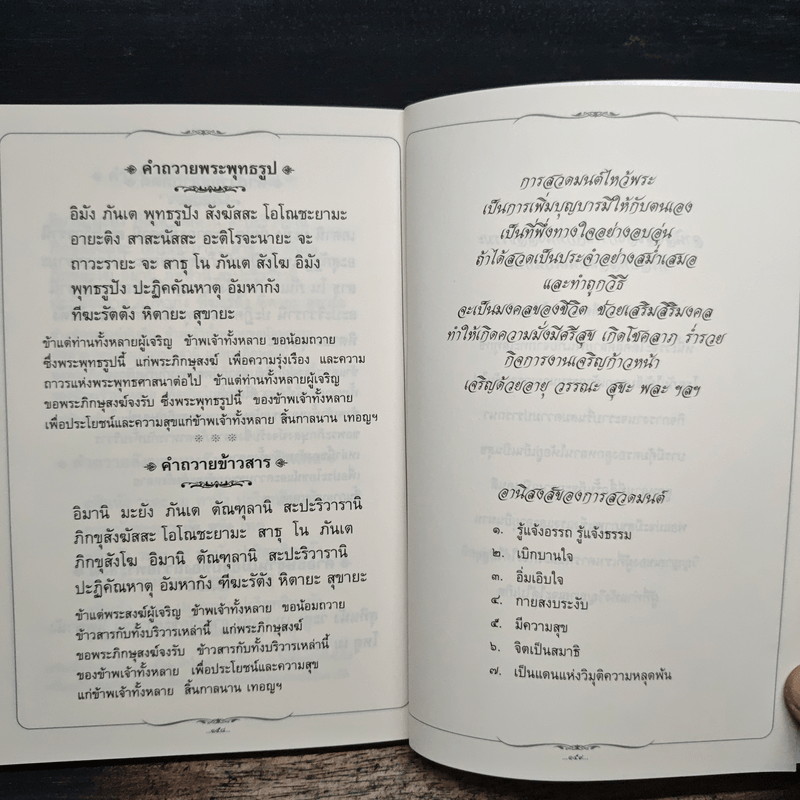 คำถวายพระพุทธรูป
อิมัง ภันเต พุทธรูปัง สังฆัสสะ โอโณชะยามะ
อายะติง สาสะนัสสะ อะติโรจะนายะ จะ
ถาวะรายะ จะ สาธุ โน ภันเต สังโฆ อิมัง
พุทธรูปัง ปะฏิคคัณหาตุ อัมหากัง
ทีฆะรัตตัง หิตายะ สุขายะ
ข้าแต่ท่านทั้งหลายผู้เจริญ ข้าพเจ้าทั้งหลาย ขอน้อมถวาย
ซึ่งพระพุทธรูปนี้ แก่พระภิกษุสงฆ์ เพื่อความรุ่งเรือง และความ
ถาวรแห่งพระพุทธศาสนาต่อไป ข้าแต่ท่านทั้งหลายผู้เจริญ
ขอพระภิกษุสงฆ์จงรับ ซึ่งพระพุทธรูปนี้ ของข้าพเจ้าทั้งหลาย
เพื่อประโยชน์และความสุขแก่ข้าพเจ้าทั้งหลาย สิ้นกาลนาน เทอญฯ
คำถวายข้าวสาร
อิมานิ มะยัง ภันเต ตัณฑุลานิ สะปะริวารานิ
ภิกขุสังฆัสสะ โอโณชะยามะ สาธุ โน ภันเต
ภิกขุสังโฆ อิมานิ ตัณฑุลานิ สะปะริวารานิ
ปะฏิคัณหาตุ อัมหากัง ฑีฆะรัตัง หิตายะ สุขายะ
ข้าแต่พระสงฆ์ผู้เจริญ ข้าพเจ้าทั้งหลาย ขอน้อมถวาย
ข้าวสารกับทั้งบริวารเหล่านี้ แก่พระภิกษุสงฆ์
ขอพระภิกษุสงฆ์จงรับ ข้าวสารกับทั้งบริวารเหล่านี้
ของข้าพเจ้าทั้งหลาย เพื่อประโยชน์และความสุข
แก่ข้าพเจ้าทั้งหลาย สิ้นกาลนาน เทอญฯ
การสวดมนต์ไหว้พระ
เป็นการเพิ่มบุญบารมีให้กับตนเอง
เป็นที่พึ่งทางใจอย่างอบอุ่น
ถ้าได้สวดเป็นประจำอย่างสม่ำเสมอ
และทำถูกวิธี
จะเป็นมงคลของชีวิต ช่วยเสริมสิริมงคล
ทำให้เกิดความมั่งมีศรีสุข เกิดโชคลาภ ร่ำรวย
กิจการงานเจริญก้าวหน้า
เจริญด้วยอายุ วรรณะ สุขะ พละ ฯลฯ
อานิสงส์ของการสวดมนต์
๑. รู้แจ้งอรรถ รู้แจ้งธรรม
๒. เบิกบานใจ
๓. อิ่มเอิบใจ
๔. กายสงบระงับ
๕. มีความสุข
๖. จิตเป็นสมาธิ
๗. เป็นแดนแห่งวิมุติความหลุดพ้น